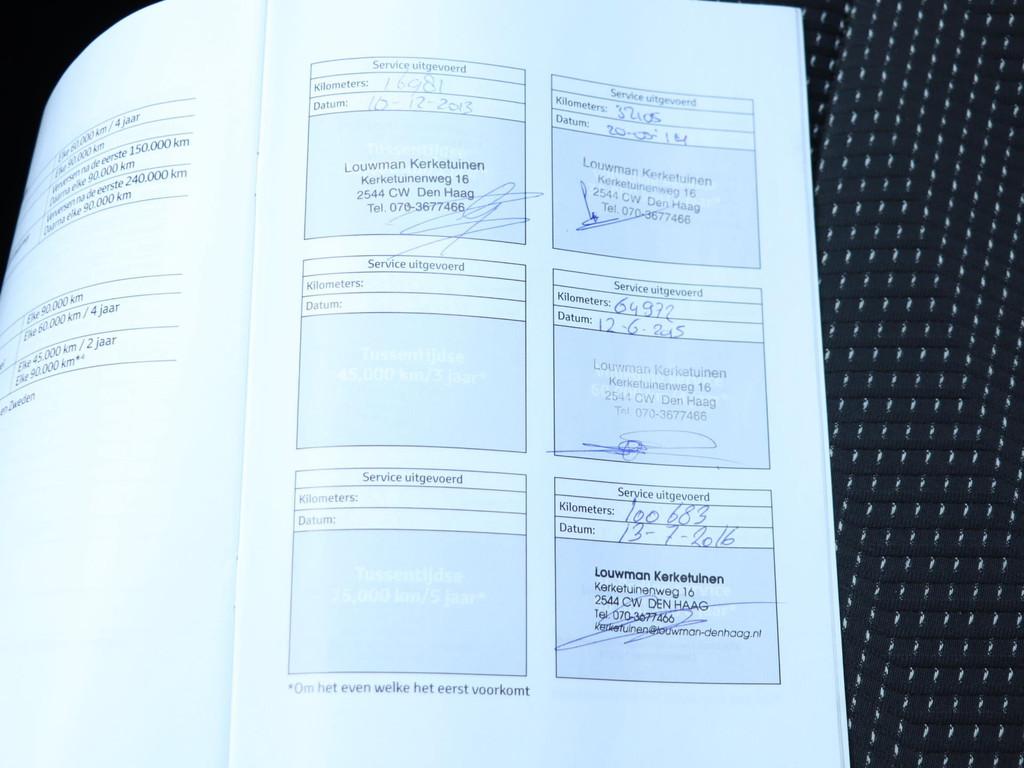 Elke 60.000 km / 4 jaar
Elke 90.000 km
Verversen na de eerste 150.000 km
Daarna elke 90.000 km
Verversen na de eerste 240.000 km
Daarna elke 90.000 km
Elke 90.000 km
Elke 60.000 km / 4 jaar
Elke 45.000 km / 2 jaar
Elke 90.000 km*⁴
en Zweden
Service uitgevoerd
Kilometers: 16981
Datum: 10-12-2013
Tussentijdse
Louwman Kerketuinen
Kerketuinenweg 16
2544 CW Den Haag
Tel. 070-3677466
Service uitgevoerd
Kilometers: 32105
Datum:
Louwman Kerketuinen
Kerketuinenweg 16
2544 CW Den Haag
Tel. 070-3677466
Service uitgevoerd
Kilometers:
Datum:
Tussentijdse
45,000 km/3 jaar*
Service uitgevoerd
Kilometers: 64972
Datum: 12-6-2015
Louwman Kerketuinen
Kerketuinenweg 16
2544 CW Den Haag
Tel. 070-3677466
Service uitgevoerd
Kilometers:
Datum:
Tussentijdse
75,000 km/5 jaar*
Service uitgevoerd
Kilometers: 100 683
Datum: 13-7-2016
Louwman Kerketuinen
Kerketuinenweg 16
2544 CW DEN HAAG
Tel. 070-3677466
kerketuinen@louwman-denhaag.nl
*Om het even welke het eerst voorkomt